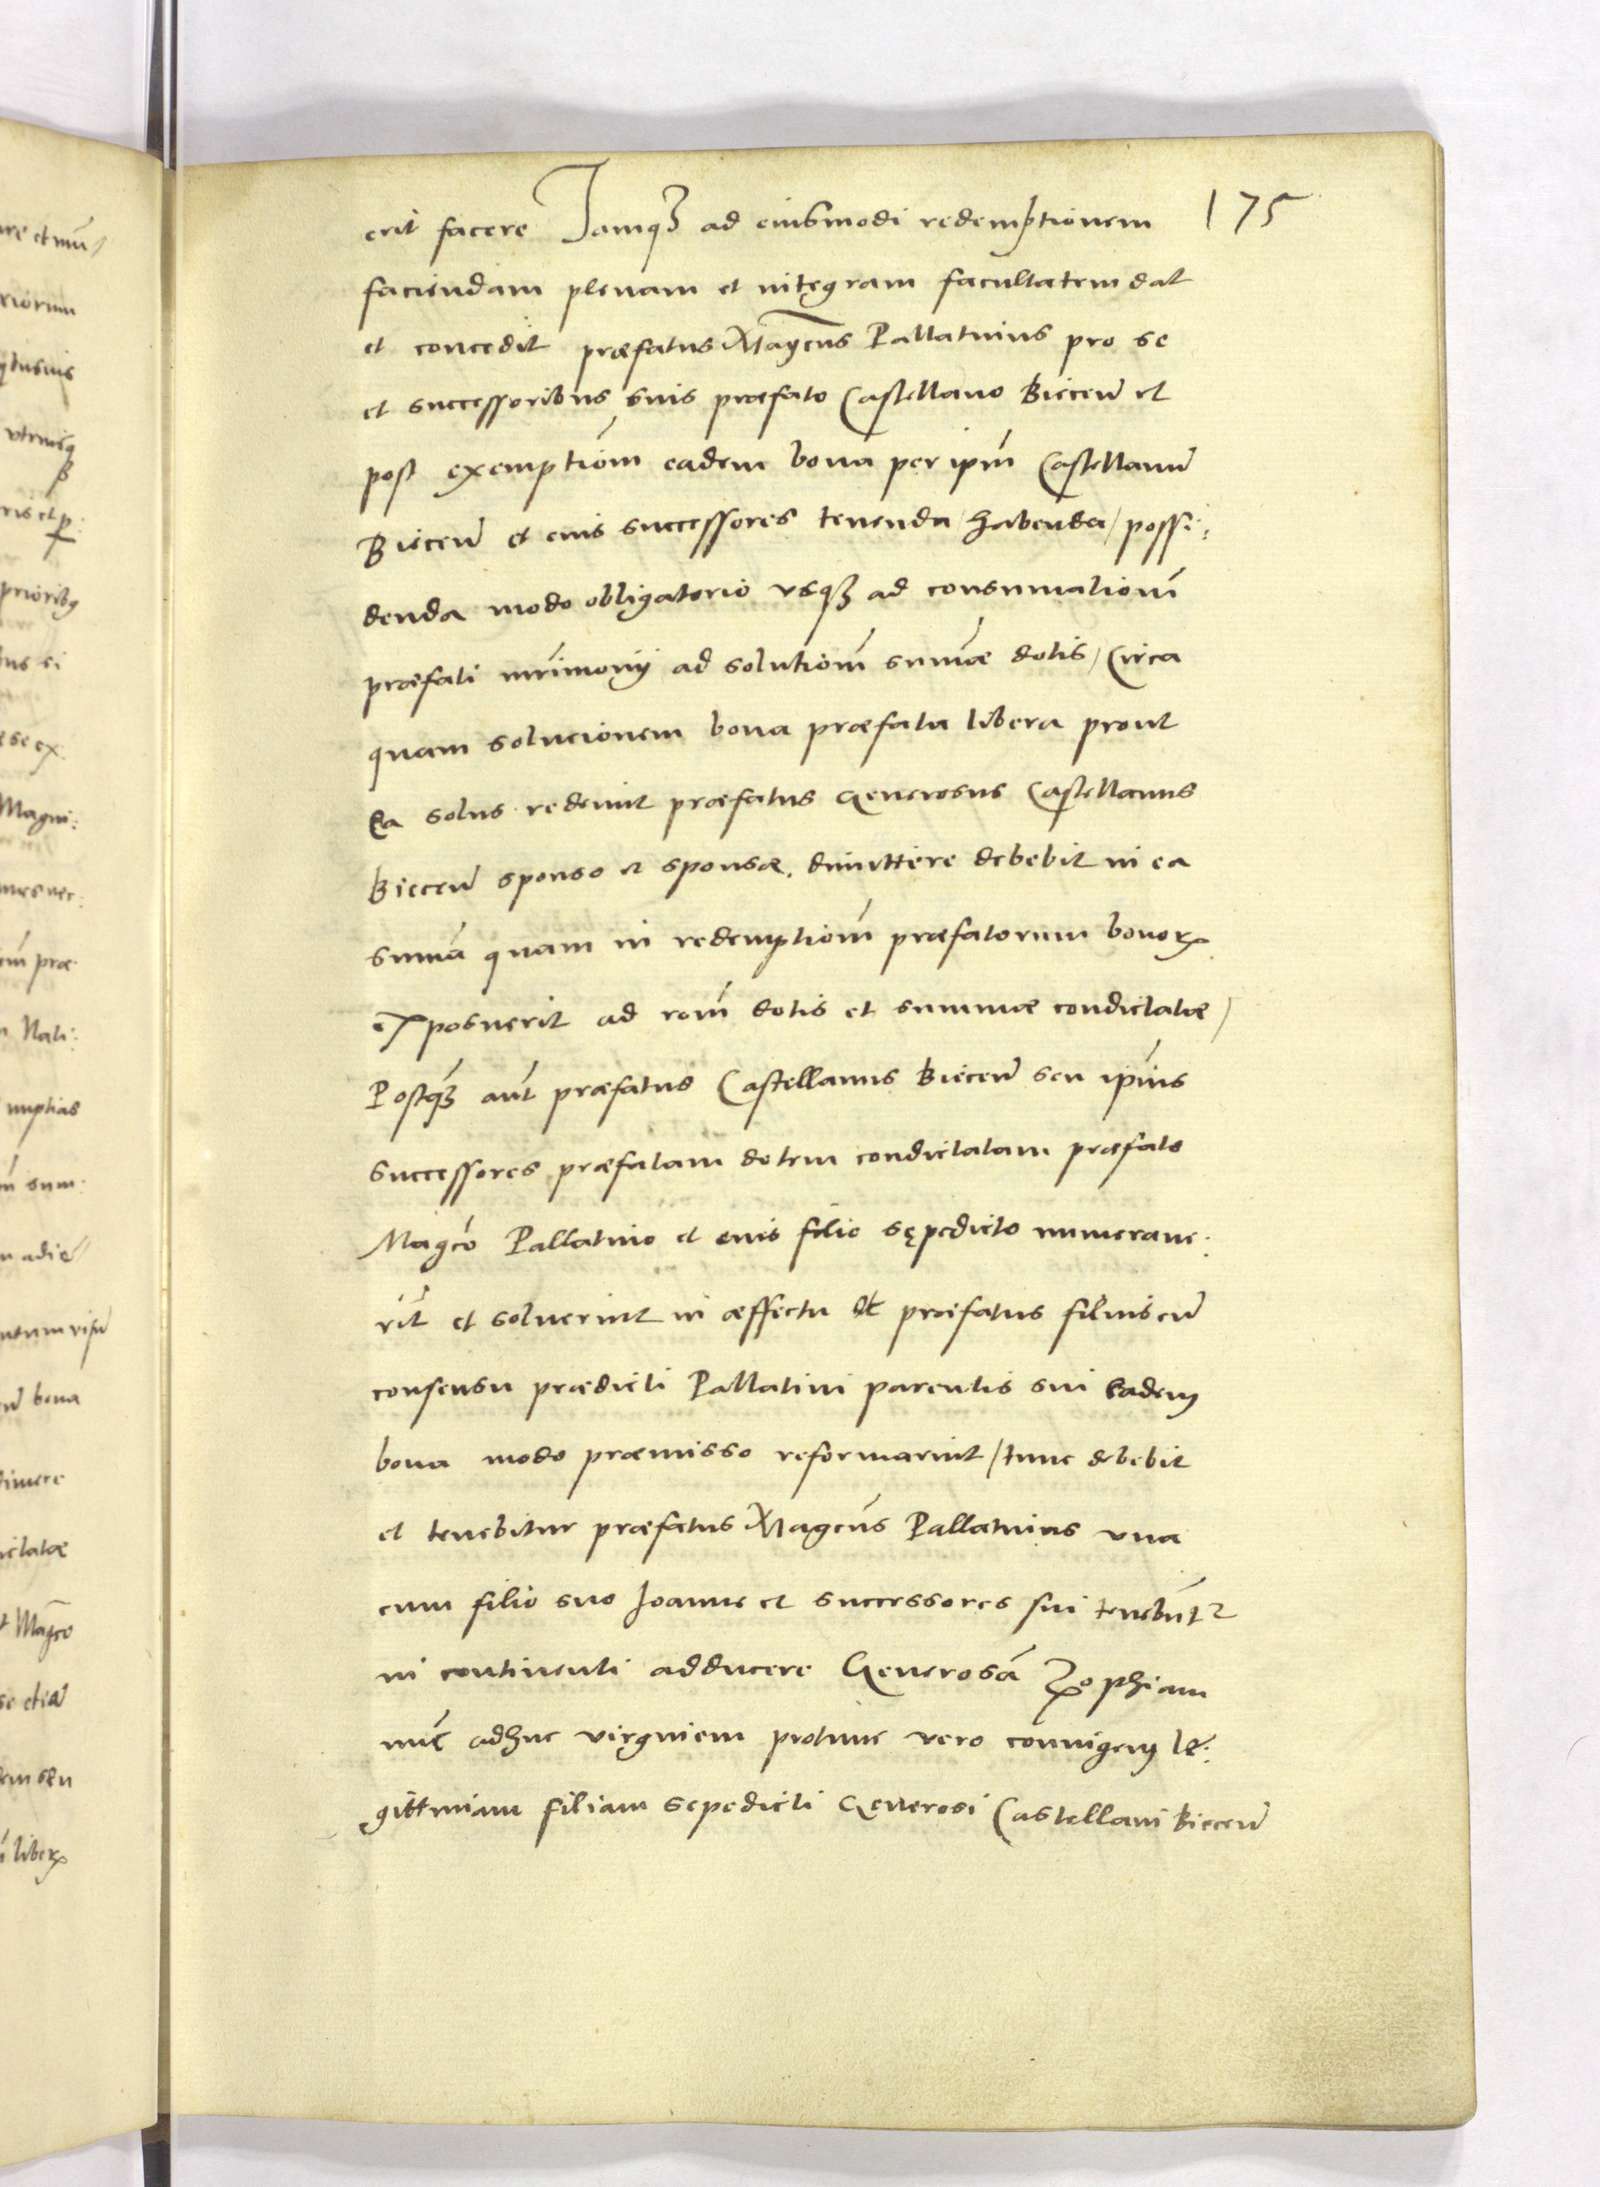 175
erit facere Jamqȝ ad eiusmodi redemptionem
faciendam plenam et integram facultatem dat
et concedit præfatus Magcus Pallatinus pro se
et successoribus suis præfato Castellano Biecen̄ et
post exemptiōm eadem bona per ipm̄ Castellanū
Biecen̄ et eius successores tenenda / habenda / possi:
denda modo obligatorio vsqȝ ad consumationē
præfati mr̄imonij ad solutiōm sum̄æ dotis / Circa
quam solucionem bona præfata libera prout
Ea solus redemit præfatus Generosus Castellanus
Biecen̄ sponso et sponsæ. dimittere debebit in ea
sum̄a quam in redemptiōm præfatorum bonoꝝ
exposuerit ad rōm dotis et summæ condictatæ /
Postqȝ aūt præfatus Castellanus Biecen̄ seu ipīus
successores præfatam dotem condictatam præfato
Magcō Pallatino et eius filio sępedicto numeraue:
rīt et soluerint in æffectu Et præfatus filius cū
consensu prædicti Pallatini parentis sui Eadem
bona modo præmisso reformarint / tunc debebit
et tenebitur præfatus Magcūs Pallatinus vna
cum filio suo Joanne et successores sui tenebūtr
in continenti adducere Generosā Zophiam
nūc adhuc virginem protunc vero coniugem le:
gittimam filiam sepedicti Generosi Castellani Biecen̄